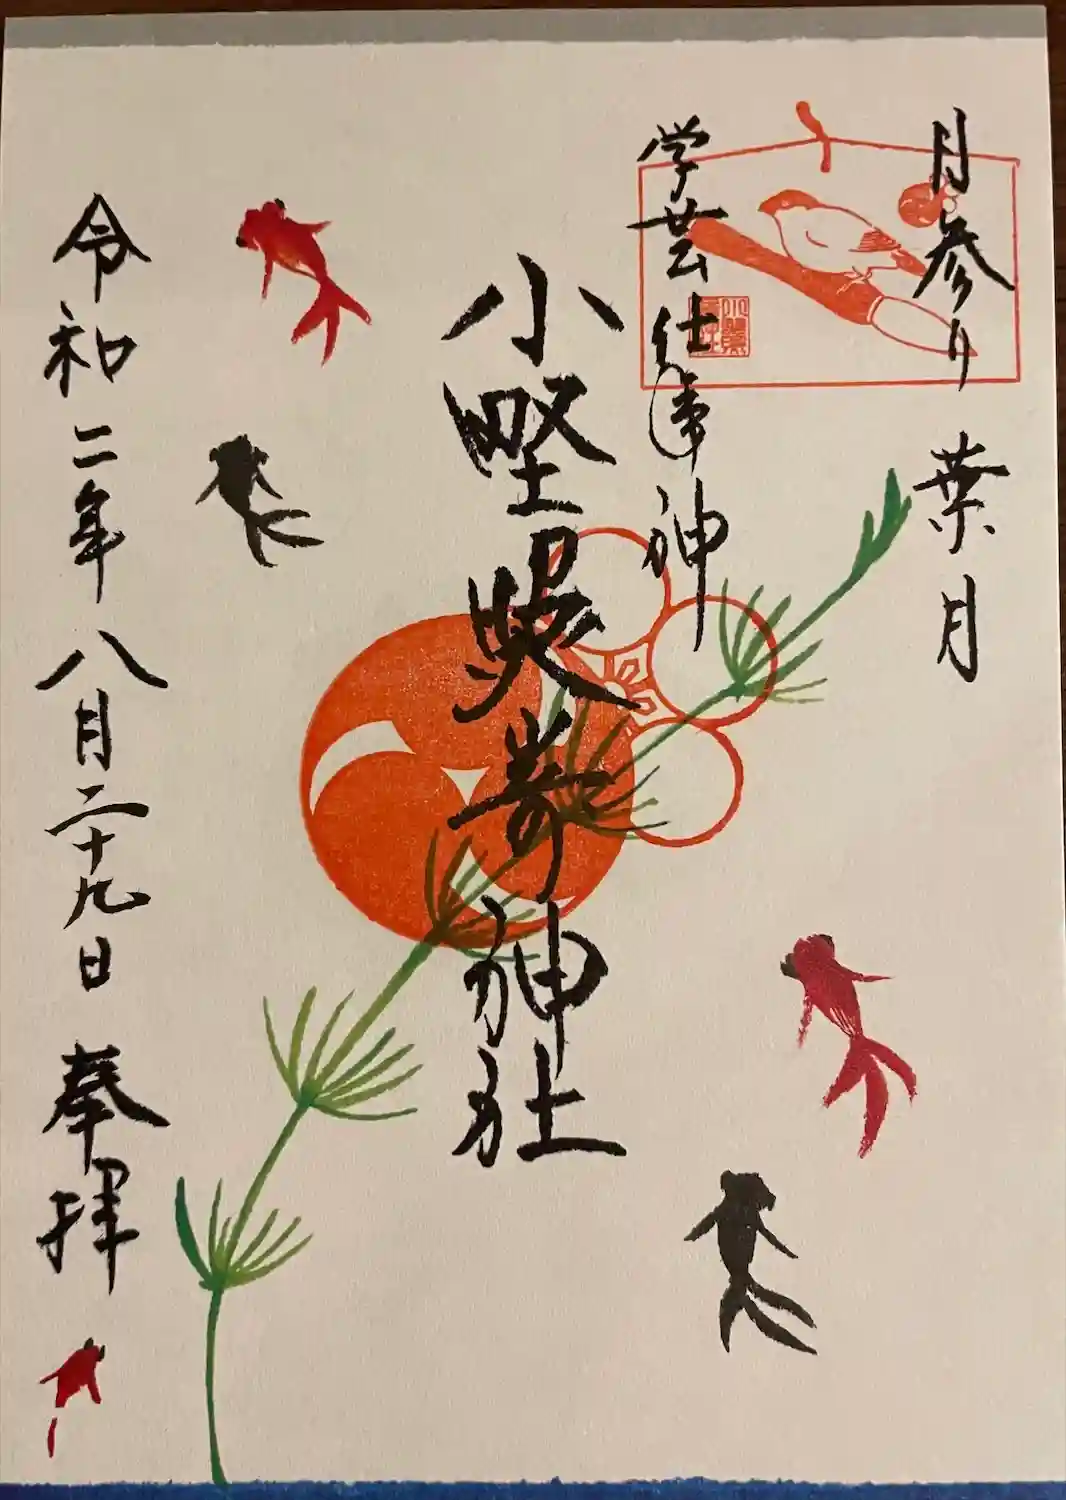 月参り 葉月
学芸仕事神
小野照嵜神社
令和二年八月二十九日 奉拝